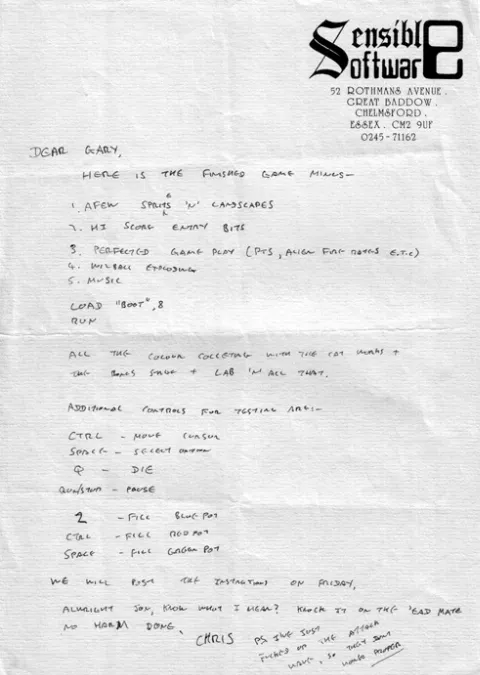 Sensible
Software
52 ROTHMANS AVENUE.
GREAT BADDOW.
CHELMSFORD.
ESSEX. CM2 9UF
0245-71162
DEAR GARY,
HERE IS THE FINISHED GAME MINUS-
1. A FEW SPRITES 'N' LANDSCAPES
2. HI SCORE ENTRY BITS
3. PERFECTED GAME PLAY (PTS, ALIEN FIRE RATES E.T.C)
4. WIZBALL EXPLODING
5. MUSIC
LOAD "BOOT",8
RUN
ALL THE COLOUR COLLECTING WITH THE CAT WORKS +
THE BONUS STAGE + LAB 'N ALL THAT.
ADDITIONAL CONTROLS FOR TESTING ARE:-
CTRL - MOVE CURSOR
SPACE - SELECT OPTION
Q - DIE
RUN/STOP - PAUSE
2 - FILL BLUE POT
CTRL - FILL RED POT
SPACE - FILL GREEN POT
WE WILL POST THE INSTRUCTIONS ON FRIDAY,
ALWRIGHT SON, KNOW WHAT I MEAN? KNOCK IT ON THE 'EAD MATE
NO HARM DONE.
CHRIS
PS. I'VE JUST
THE ATTACK
WAVE, SO THEY DON'T
WORK PROPER